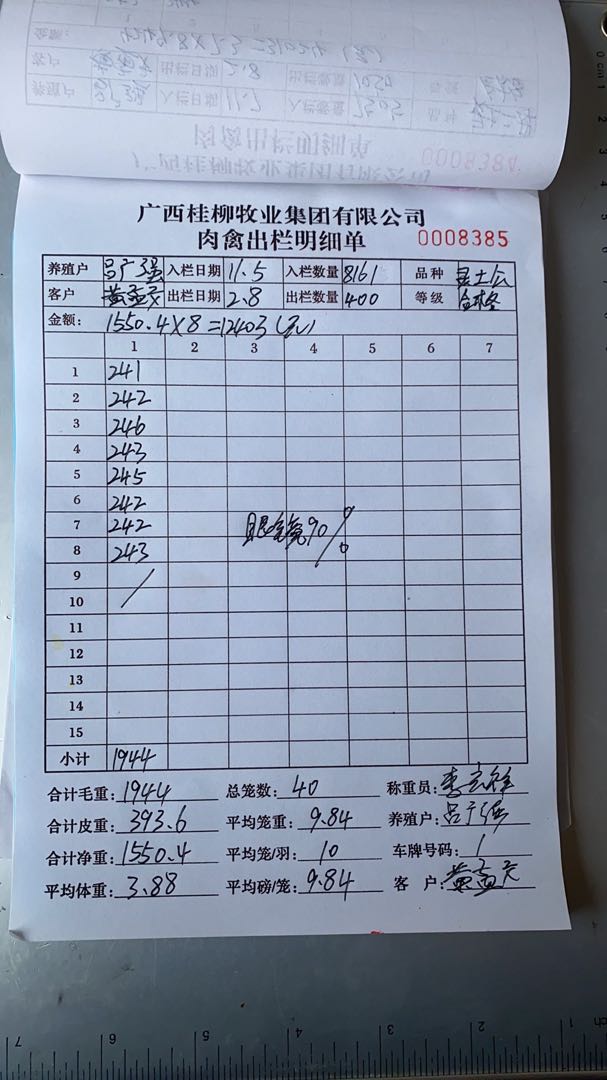 广西桂柳牧业集团有限公司
肉禽出栏明细单 0008384
广西桂柳牧业集团有限公司
肉禽出栏明细单 0008385
养殖户 吕广强 入栏日期 11.5 入栏数量 8161 品种
客户 出栏日期 2.8 出栏数量 400 等级 合格
金额: 1550.4×8=12403(元)
1 2 3 4 5 6 7
1 241
2 242
3 246
4 243
5 245
6 242
7 242 眼睛亮90%
8 243
9 /
10
11
12
13
14
15
小计 1944
合计毛重: 1944 总笼数: 40 称重员:
合计皮重: 393.6 平均笼重: 9.84 养殖户: 吕广强
合计净重: 1550.4 平均笼/羽: 10 车牌号码: 1
平均体重: 3.88 平均磅/笼: 9.84 客 户: